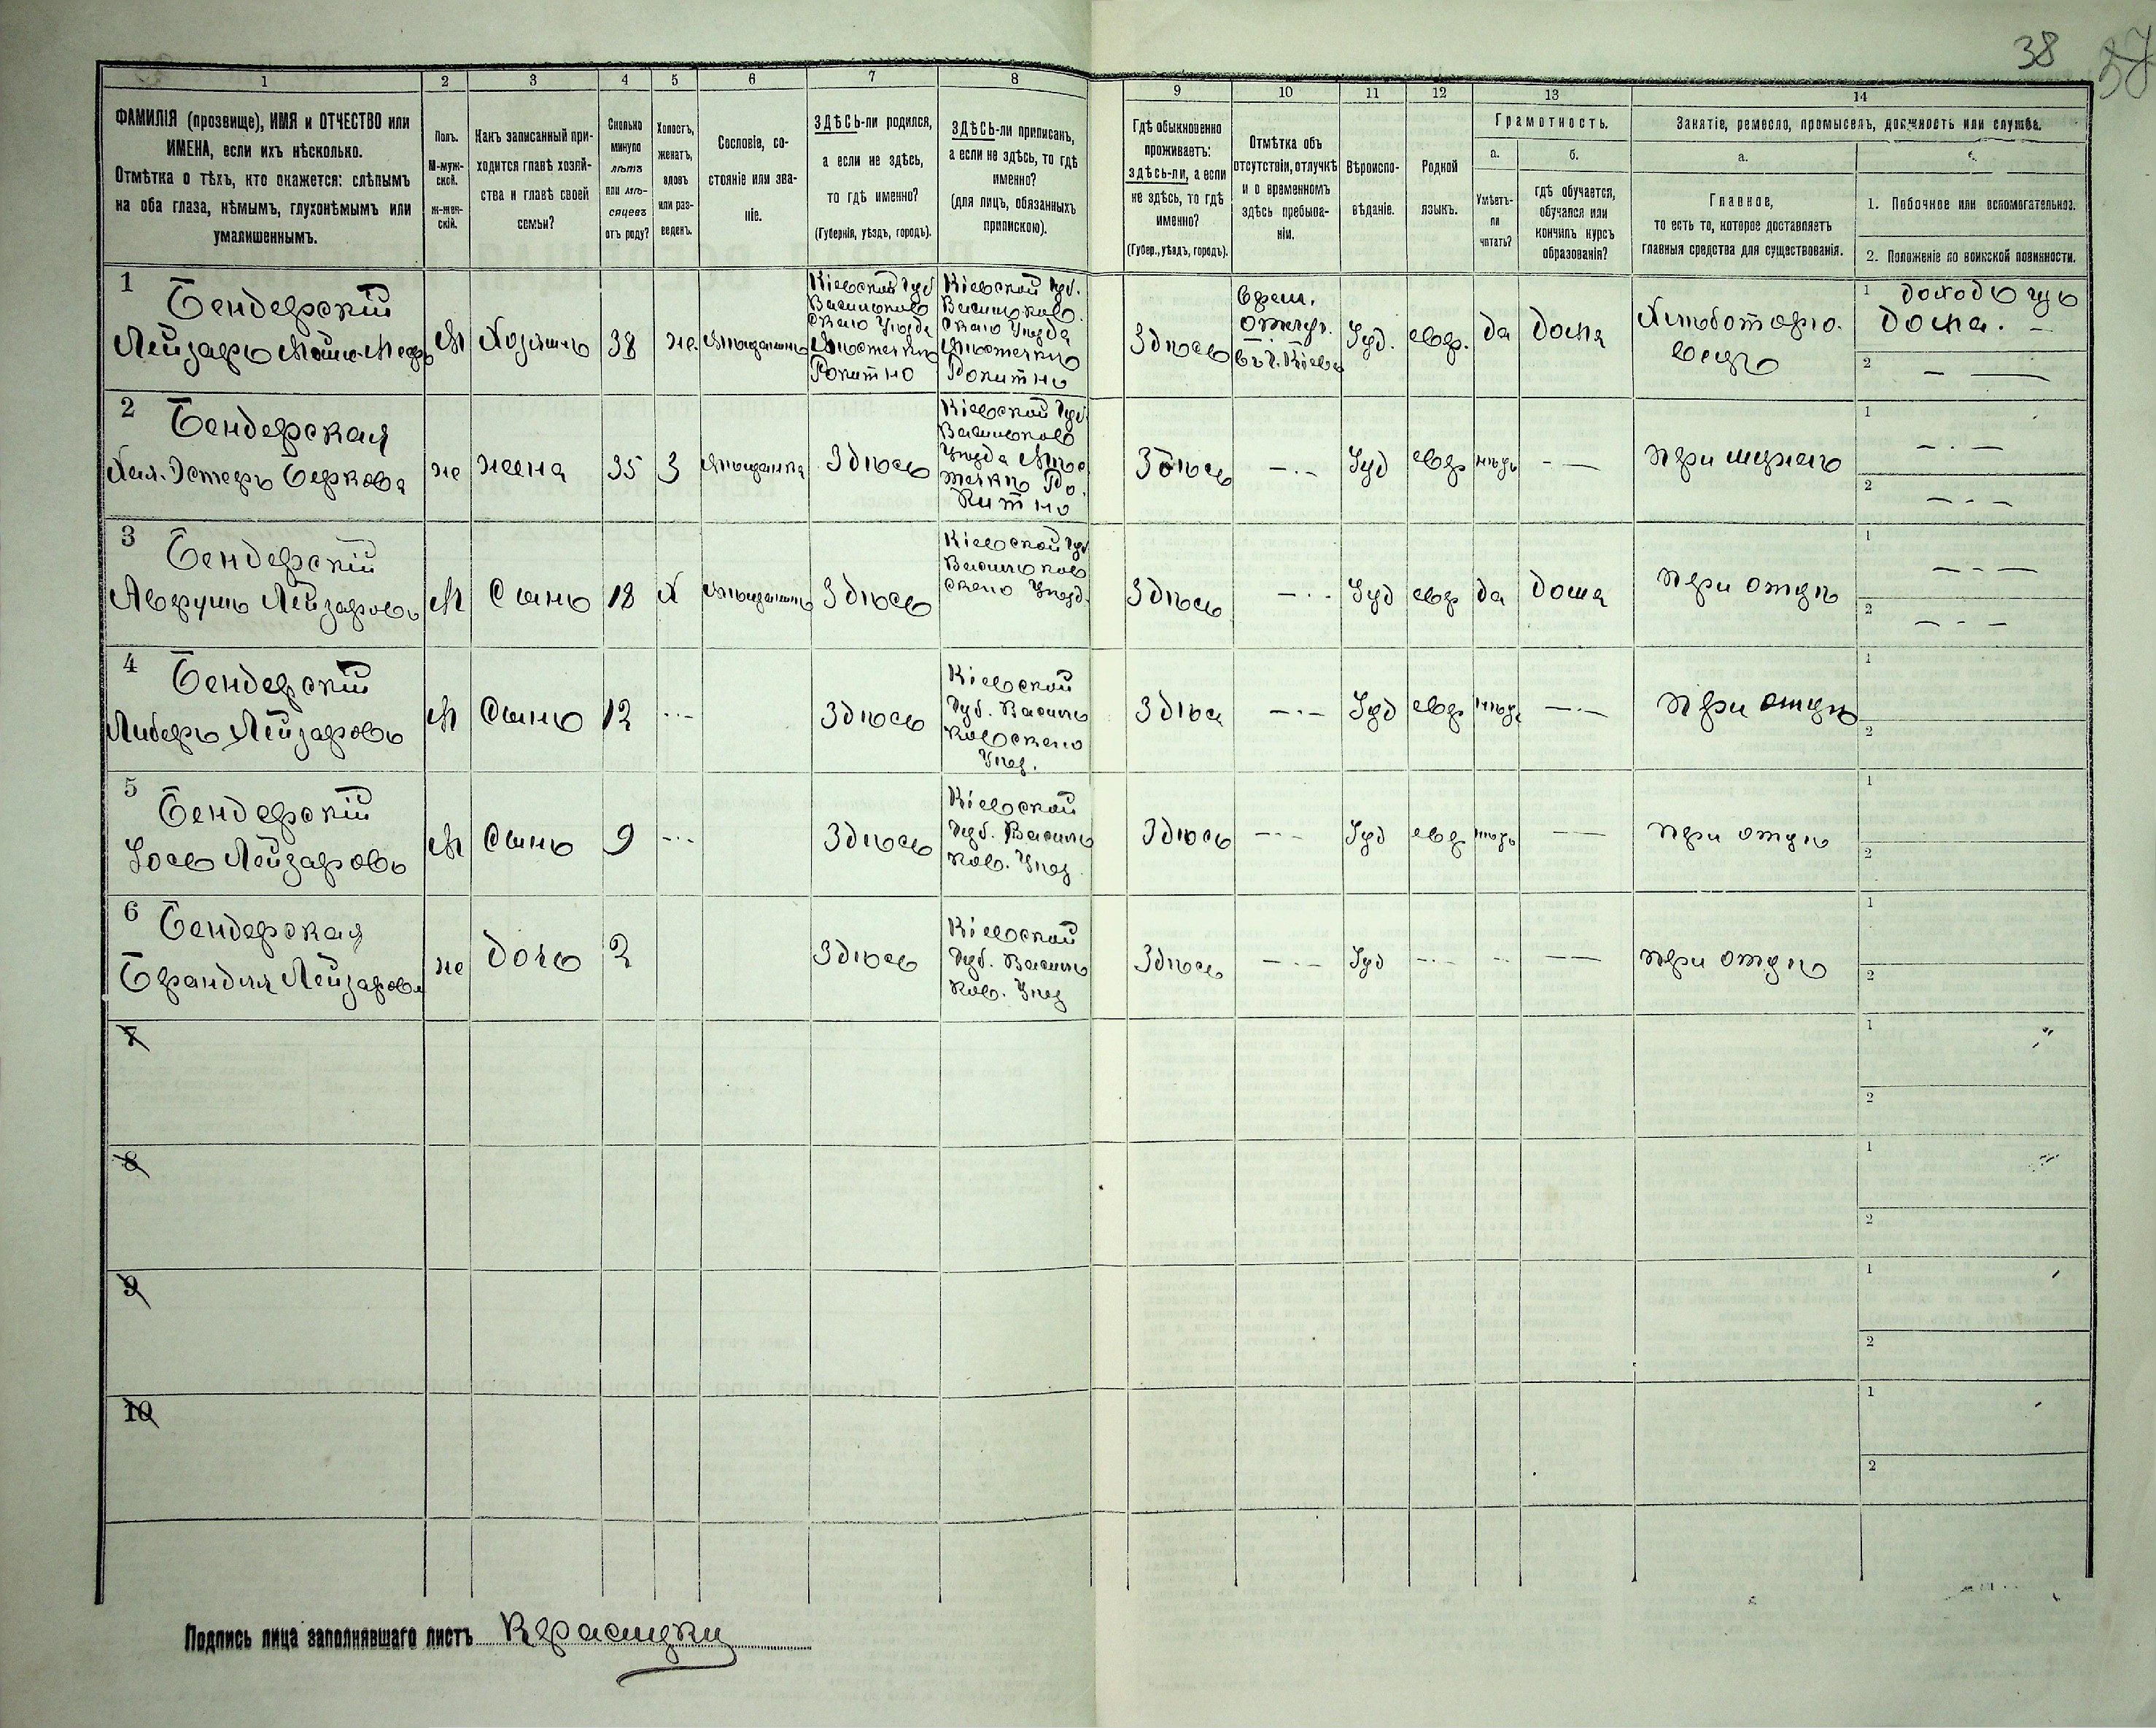 38
57
1
2
3
4
5
6
7
8
9
10
11
12
13
14
ФАМИЛІЯ (прозвище), ИМЯ и ОТЧЕСТВО или
ИМЕНА, если ихъ нѣсколько.
Отмѣтка о тѣхъ, кто окажется: слѣпымъ
на оба глаза, нѣмымъ, глухонѣмымъ или
умалишеннымъ.
Полъ.
М-муж-
ской.
ж-жен-
скій.
Какъ записанный при-
ходится главѣ хозяй-
ства и главѣ своей
семьи?
Сколько
минуло
лѣтъ
или мѣ-
сяцевъ
отъ роду?
Холостъ,
женатъ,
вдовъ
или раз-
веденъ.
Сословіе, со-
стояніе или зва-
ніе.
ЗДѢСЬ-ли родился,
а если не здѣсь,
то гдѣ именно?
(Губернія, уѣздъ, городъ).
ЗДѢСЬ-ли приписанъ,
а если не здѣсь, то гдѣ
именно?
(для лицъ, обязанныхъ
припискою).
Гдѣ обыкновенно
проживаетъ:
здѣсь-ли, а если
не здѣсь, то гдѣ
именно?
(Губер., уѣздъ, городъ).
Отмѣтка объ
отсутствіи, отлучкѣ
и о временномъ
здѣсь пребыва-
ніи.
Вѣроиспо-
вѣданіе.
Родной
языкъ.
Грамотность.
а.
Умѣетъ-
ли
читать?
б.
гдѣ обучается,
обучался или
кончилъ курсъ
образованія?
Занятіе, ремесло, промыселъ, должность или служба.
а.
Главное,
то есть то, которое доставляетъ
главныя средства для существованія.
1. Побочное или вспомогательное.
2. Положеніе по воинской повинности.
1
Бендерскій
Лейзаръ Мошко-Меер
М
Хозяинъ
38
же.
Мѣщанинъ
Кіевской Губ
Васильков
скаго Уѣзда
Мѣстечкѣ
Рокитно
Кіевской Губ.
Васильков.
скаго Уѣзда
Мѣстечкѣ
Рокитно
Здѣсь
врем.
отлуч.
въ г. Кіевѣ
Іуд.
евр.
да
дома
Хлѣботорго.
вецъ
1 доходъ изъ
дома. —
2 — —
2
Бендерская
Хая-Эстеръ Беркова
же
жена
35
З
Мѣщанка
Здѣсь
Кіевской Губ
Васильков
Уѣзда Мѣс
течкѣ Ро.
китно
Здѣсь
—.—
Іуд
евр
нѣтъ
- —
при мужѣ
1 —.—
2 —.—
3
Бендерскій
Аврумъ Лейзаровъ
М
Сынъ
18
Х
Мѣщанинъ
Здѣсь
Кіевской Губ
Васильков
скаго Уѣзд.
Здѣсь
—..
Іуд
евр
да
дома
при отцѣ
1 —.—
2 —.—
4
Бендерскій
Либеръ Лейзаровъ
М
Сынъ
12
-.-
Здѣсь
Кіевской
Губ. Василь
ковскаго
Уѣз.
Здѣсь
—.—
Іуд
евр
нѣтъ
—.—
при отцѣ
1
2
5
Бендерскій
Іось Лейзаровъ
М
Сынъ
9
-.-
Здѣсь
Кіевской
Губ. Василь
ков. Уѣз
Здѣсь
—.—
Іуд
евр
нѣтъ
— —
при отцѣ
1
2
6
Бендерская
Брандля Лейзарова
же
дочь
2
Здѣсь
Кіевской
Губ. Василь
ков. Уѣз
Здѣсь
—.—
Іуд
—.—
-.
— —
при отцѣ
1
2
7
1
2
8
1
2
9
1
2
10
1
2
Подпись лица заполнявшаго листъ